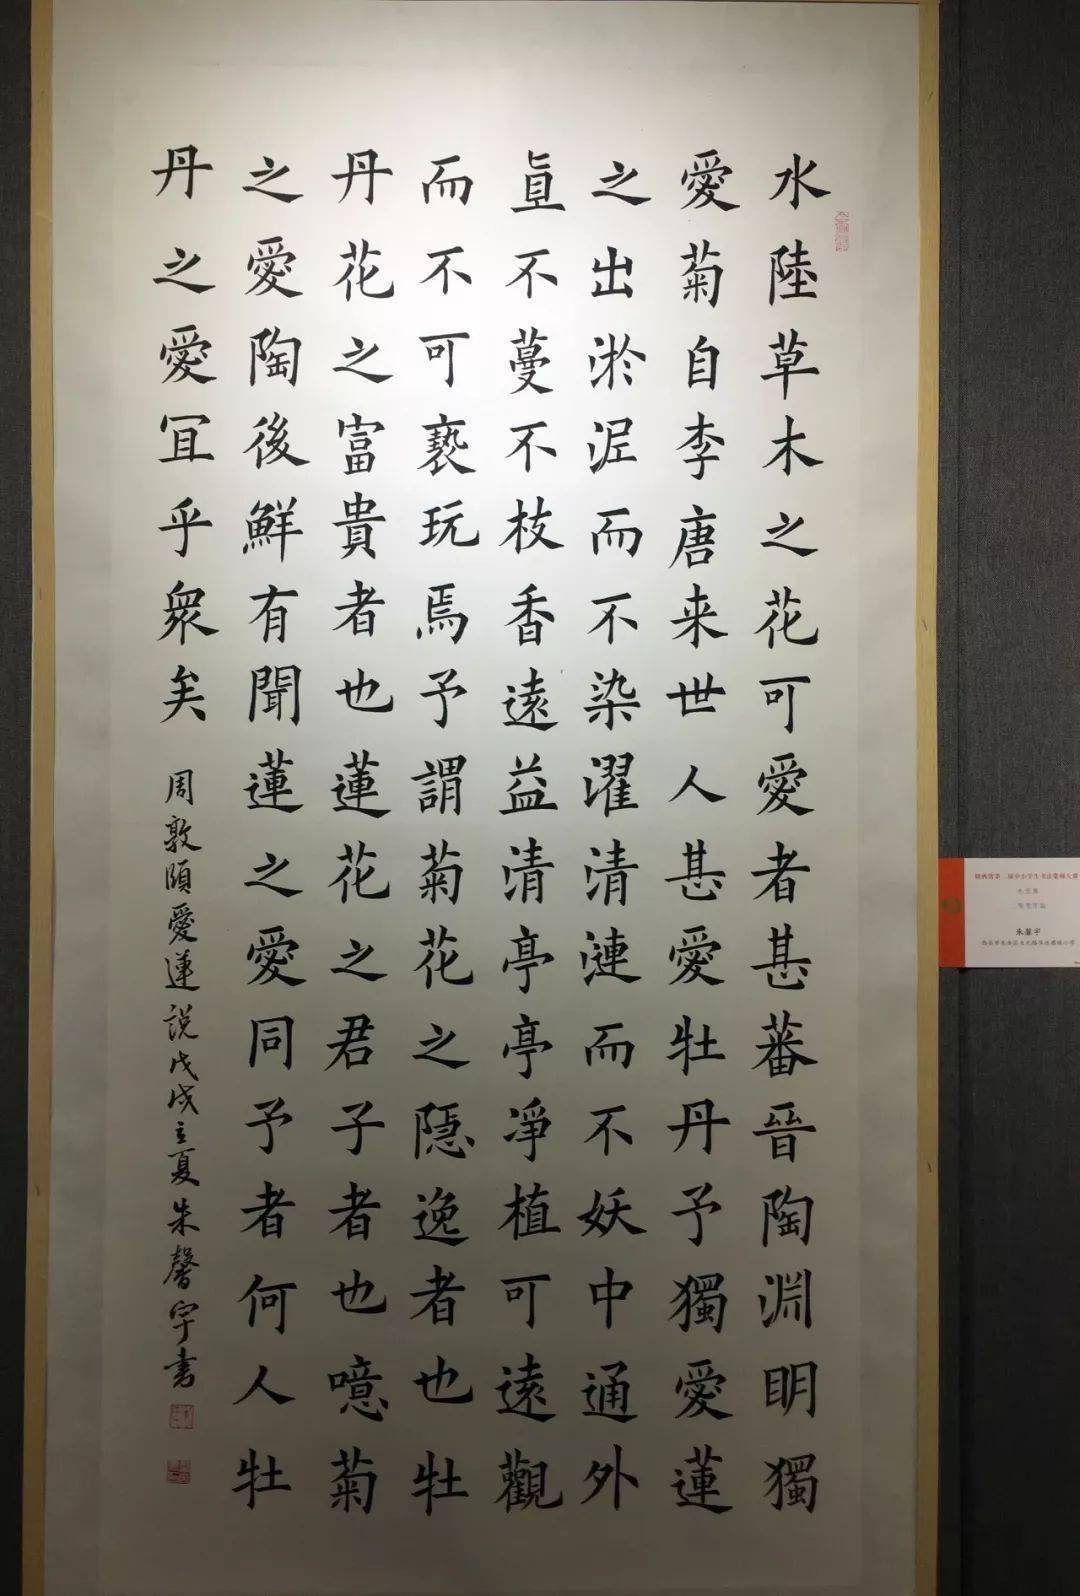 水陸草木之花可愛者甚蕃晉陶淵明獨
愛菊自李唐来世人甚愛牡丹予獨愛蓮
之出淤泥而不染濯清漣而不妖中通外
直不蔓不枝香遠益清亭亭淨植可遠觀
而不可褻玩焉予謂菊花之隱逸者也牡
丹花之富貴者也蓮花之君子者也噫菊
之愛陶後鮮有聞蓮之愛同予者何人牡
丹之愛宜乎衆矣
周敦頤愛蓮說戊戌立夏朱馨宇書
朱馨宇